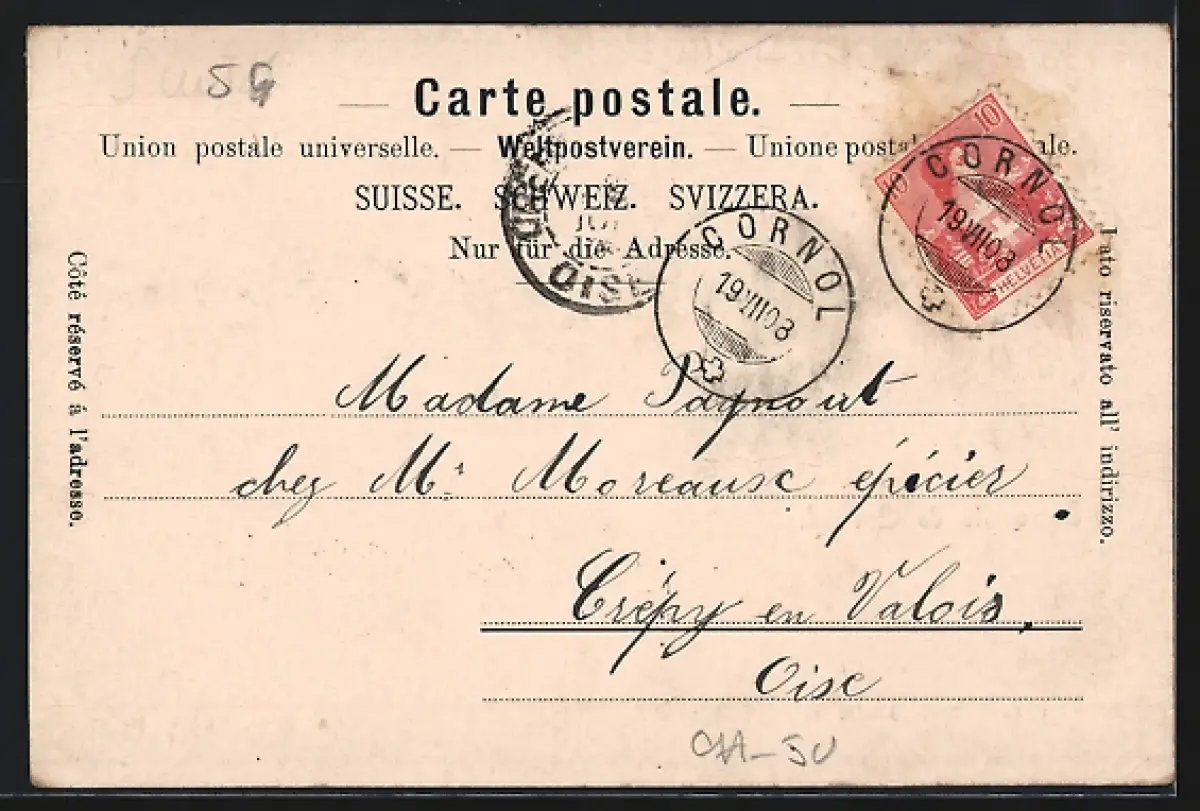 54
— Carte postale. —
Union postale universelle. — Weltpostverein. — Unione postale.
SUISSE. SCHWEIZ. SVIZZERA.
Nur für die Adresse.
10 10
HELVETIA
CORNOL
19 VII 08
CORNOL
19 VII 08
OISE
Côté réservé à l'adresse.
Lato riservato all' indirizzo.
Madame Pagnout
chez Mr. Moreaux épicier.
Crépy en Valois,
Oise